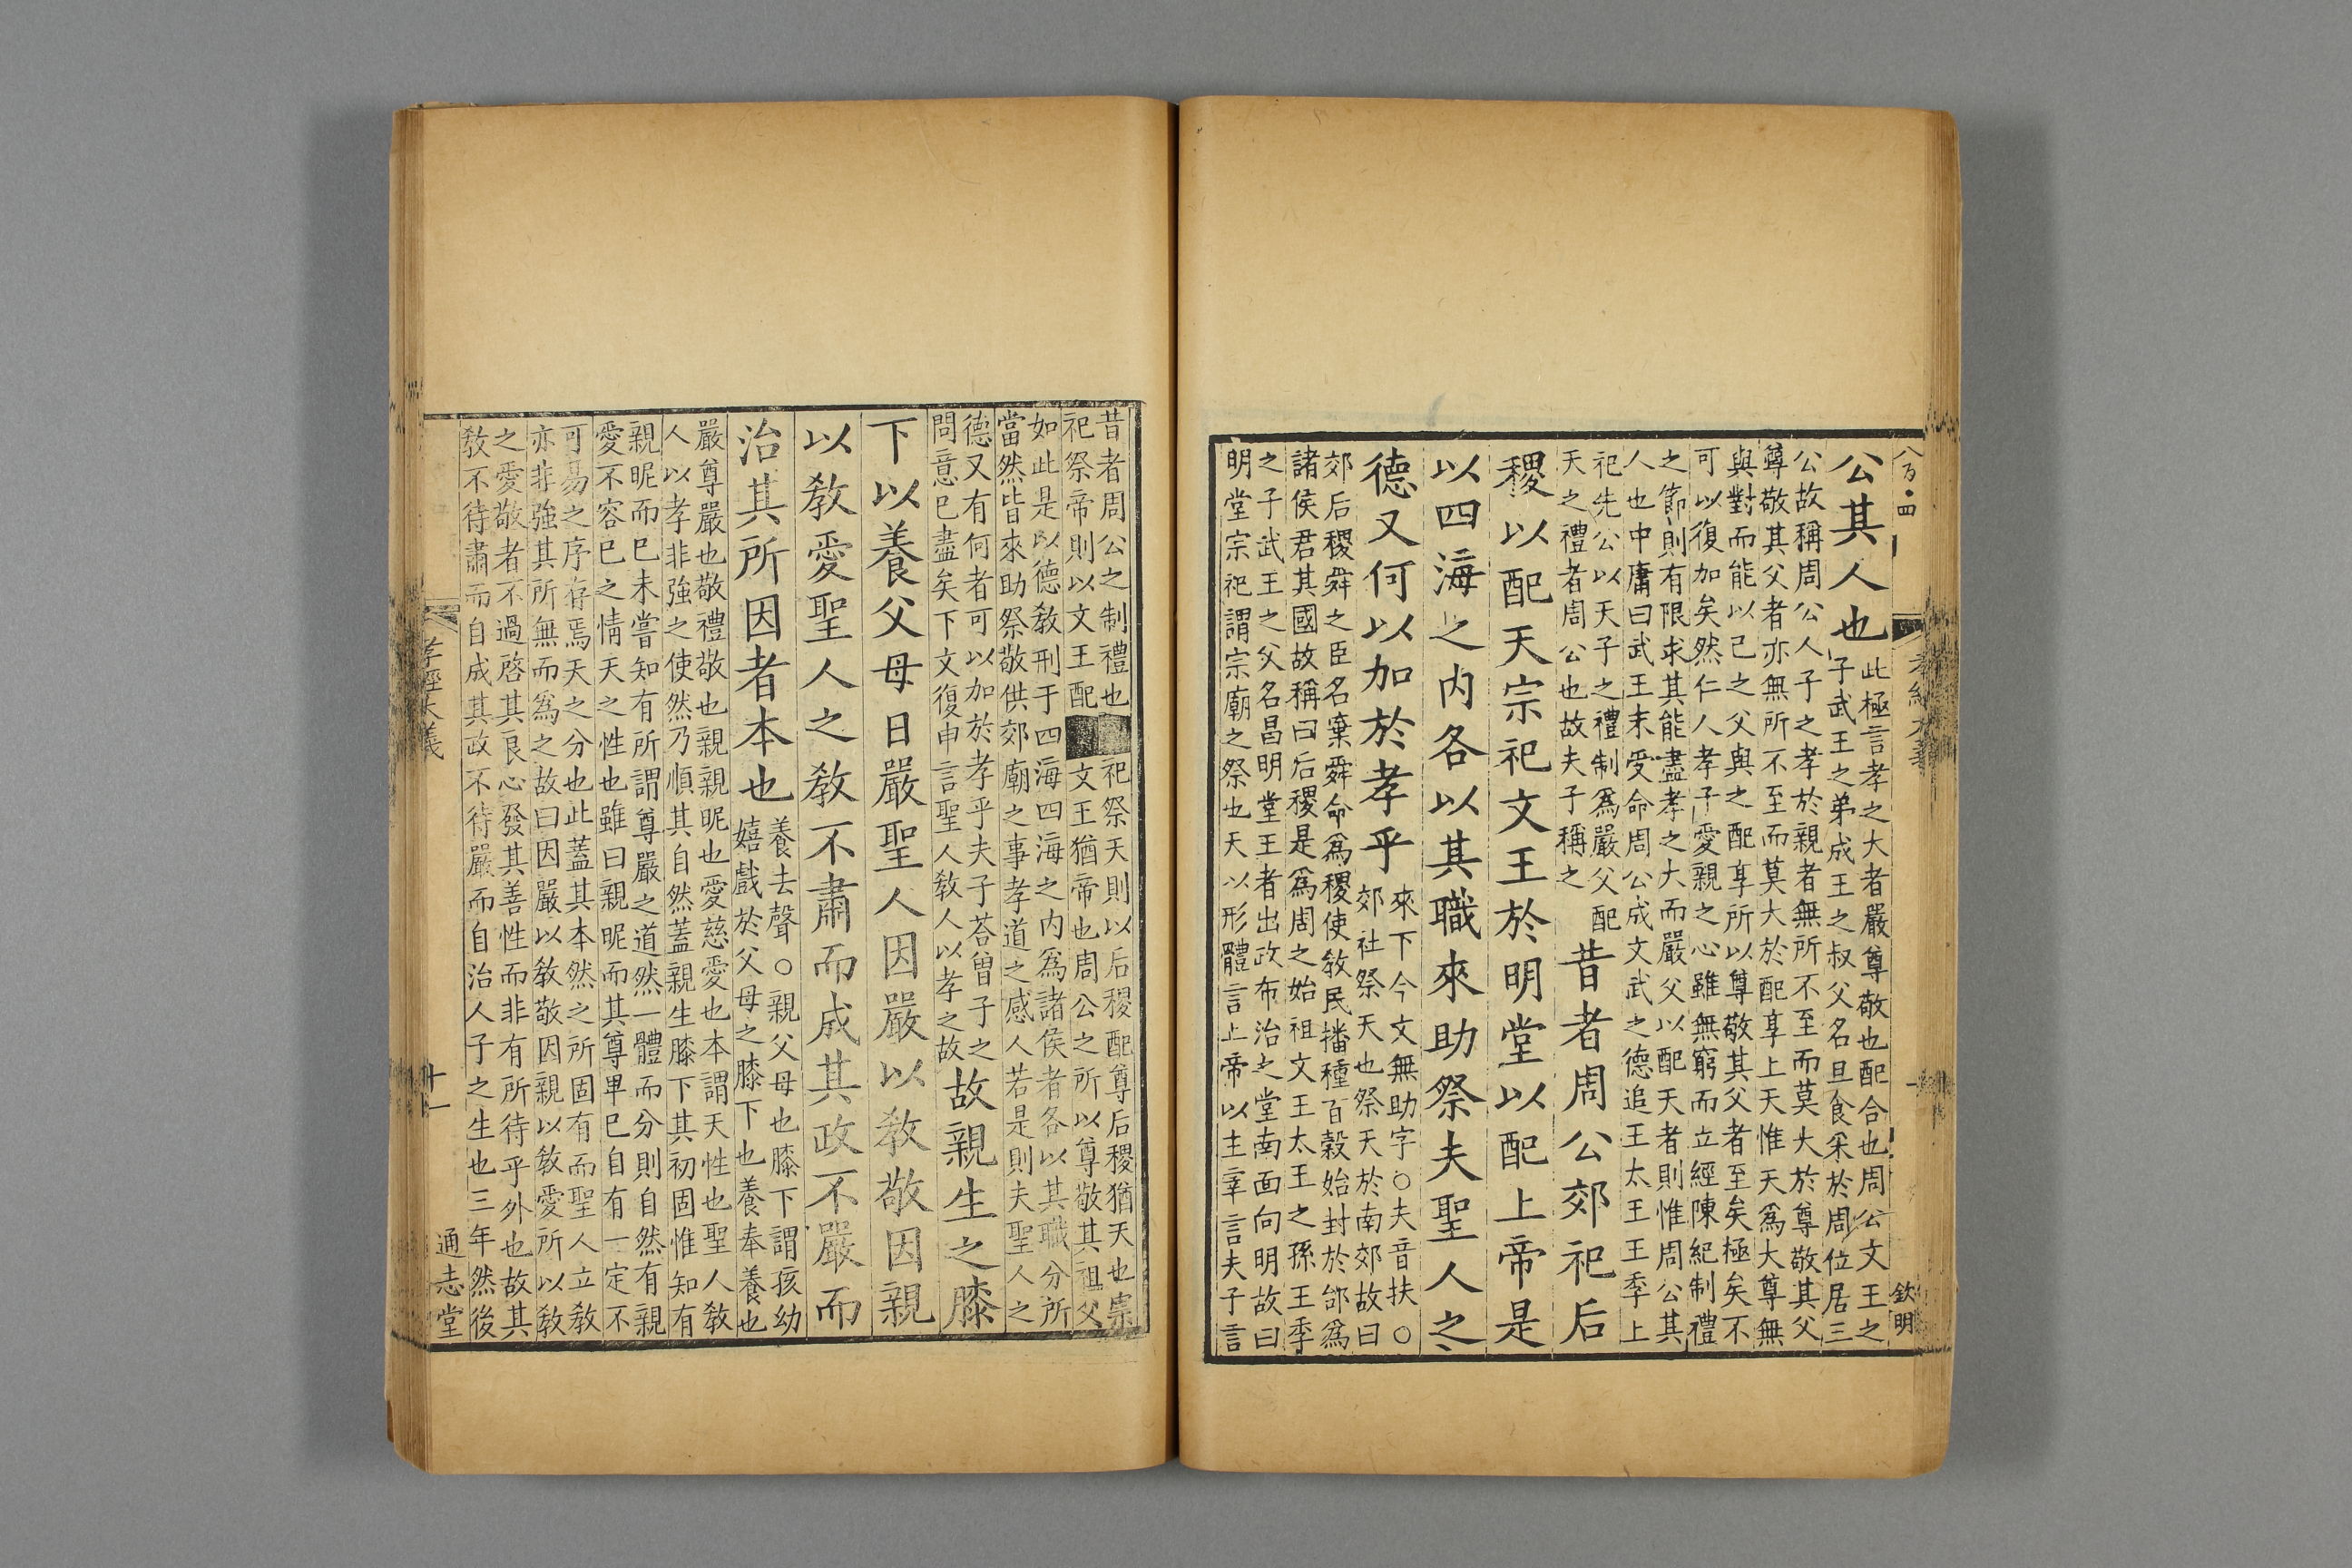 八百四
孝經大義
欽明
公其人也
此極言孝之大者嚴尊敬也配合也周公文王之
子武王之弟成王之叔父名旦食采於周位居三
公故稱周公人子之孝於親者無所不至而莫大於尊敬其父
尊敬其父者亦無所不至而莫大於配享上天惟天爲大尊無
與對而能以己之父與之配享所以尊敬其父者至矣極矣不
可以復加矣然仁人孝子愛親之心雖無窮而立經陳紀制禮
之節則有限求其能盡孝之大而嚴父以配天者則惟周公其
人也中庸曰武王末受命周公成文武之德追王太王王季上
祀先公以天子之禮制爲嚴父配
天之禮者周公也故夫子稱之
昔者周公郊祀后
稷以配天宗祀文王於明堂以配上帝是
以四海之內各以其職來助祭夫聖人之
德又何以加於孝乎
來下今文無助字○夫音扶○
郊社祭天也祭天於南郊故曰
郊后稷舜之臣名棄舜命爲稷使敎民播種百穀始封於邰爲
諸侯君其國故稱曰后稷是爲周之始祖文王太王之孫王季
之子武王之父名昌明堂王者出政布治之堂南面向明故曰
明堂宗祀謂宗廟之祭也天以形體言上帝以主宰言夫子言
昔者周公之制禮也祀祭天則以后稷配尊后稷猶天也宗
祀祭帝則以文王配文王猶帝也周公之所以尊敬其祖父
如此是以德敎刑于四海四海之內爲諸侯者各以其職分所
當然皆來助祭敬供郊廟之事孝道之感人若是則夫聖人之
德又有何者可以加於孝乎夫子荅曾子之
問意已盡矣下文復申言聖人敎人以孝之故
故親生之膝
下以養父母日嚴聖人因嚴以敎敬因親
以敎愛聖人之敎不肅而成其政不嚴而
治其所因者本也
養去聲○親父母也膝下謂孩幼
嬉戲於父母之膝下也養奉養也
嚴尊嚴也敬禮敬也親親昵也愛慈愛也本謂天性也聖人敎
人以孝非強之使然乃順其自然蓋親生膝下其初固惟知有
親昵而已未嘗知有所謂尊嚴之道然一體而分則自然有親
愛不容已之情天之性也雖曰親昵而其尊卑已自有一定不
可易之序存焉天之分也此蓋其本然之所固有而聖人立敎
亦非強其所無而爲之故曰因嚴以敎敬因親以敎愛所以敎
之愛敬者不過啓其良心發其善性而非有所待乎外也故其
敎不待肅而自成其政不待嚴而自治人子之生也三年然後
孝經大義
十一
通志堂